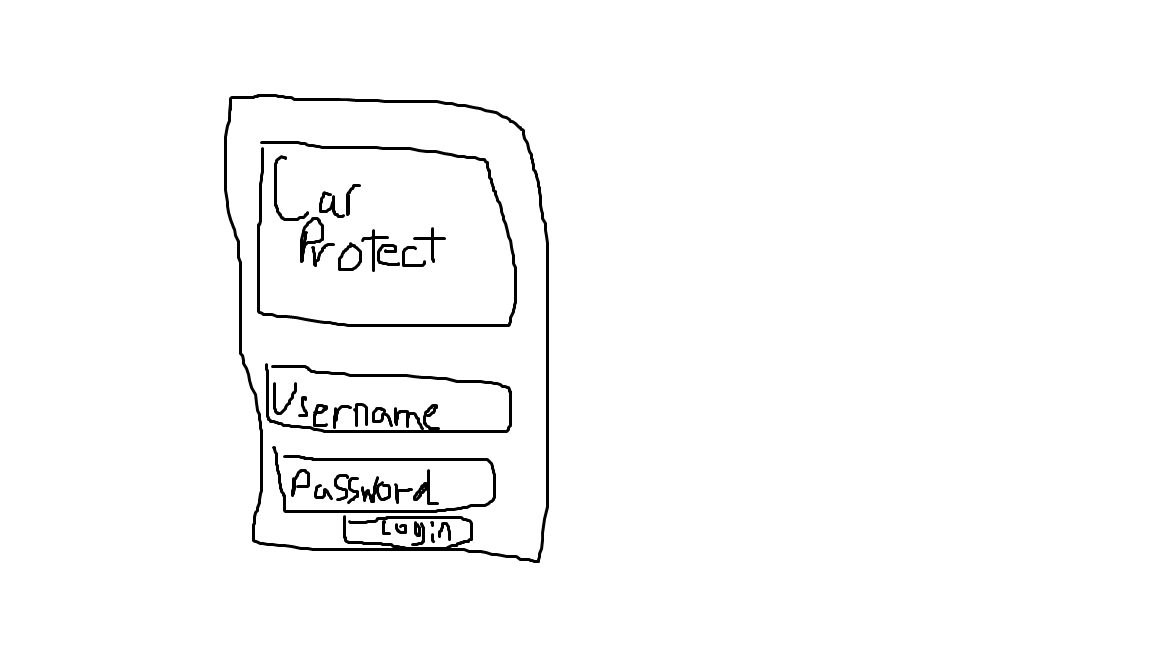 Car
Protect
Username
Password
Login